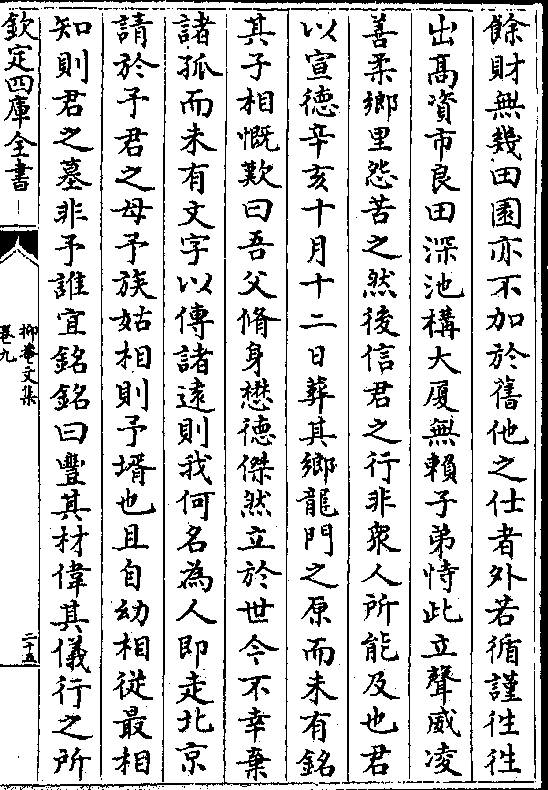 餘財無幾田園亦不加於舊他之仕者外若循謹徃徃
出髙資市良田深池構大厦無賴子弟恃此立聲威凌
善柔鄉里怨苦之然後信君之行非衆人所能及也君
以宣德辛亥十月十二日葬其鄉龍門之原而未有銘
其子相慨歎曰吾父脩身懋德傑然立於世今不幸棄
諸孤而未有文字以傳諸逺則我何名為人即走北京
請於予君之母予族姑相則予壻也且自幼相從最相
知則君之墓非予誰宜銘銘曰豐其材偉其儀行之所
欽定四庫全書
抑菴文集
卷九
二十五